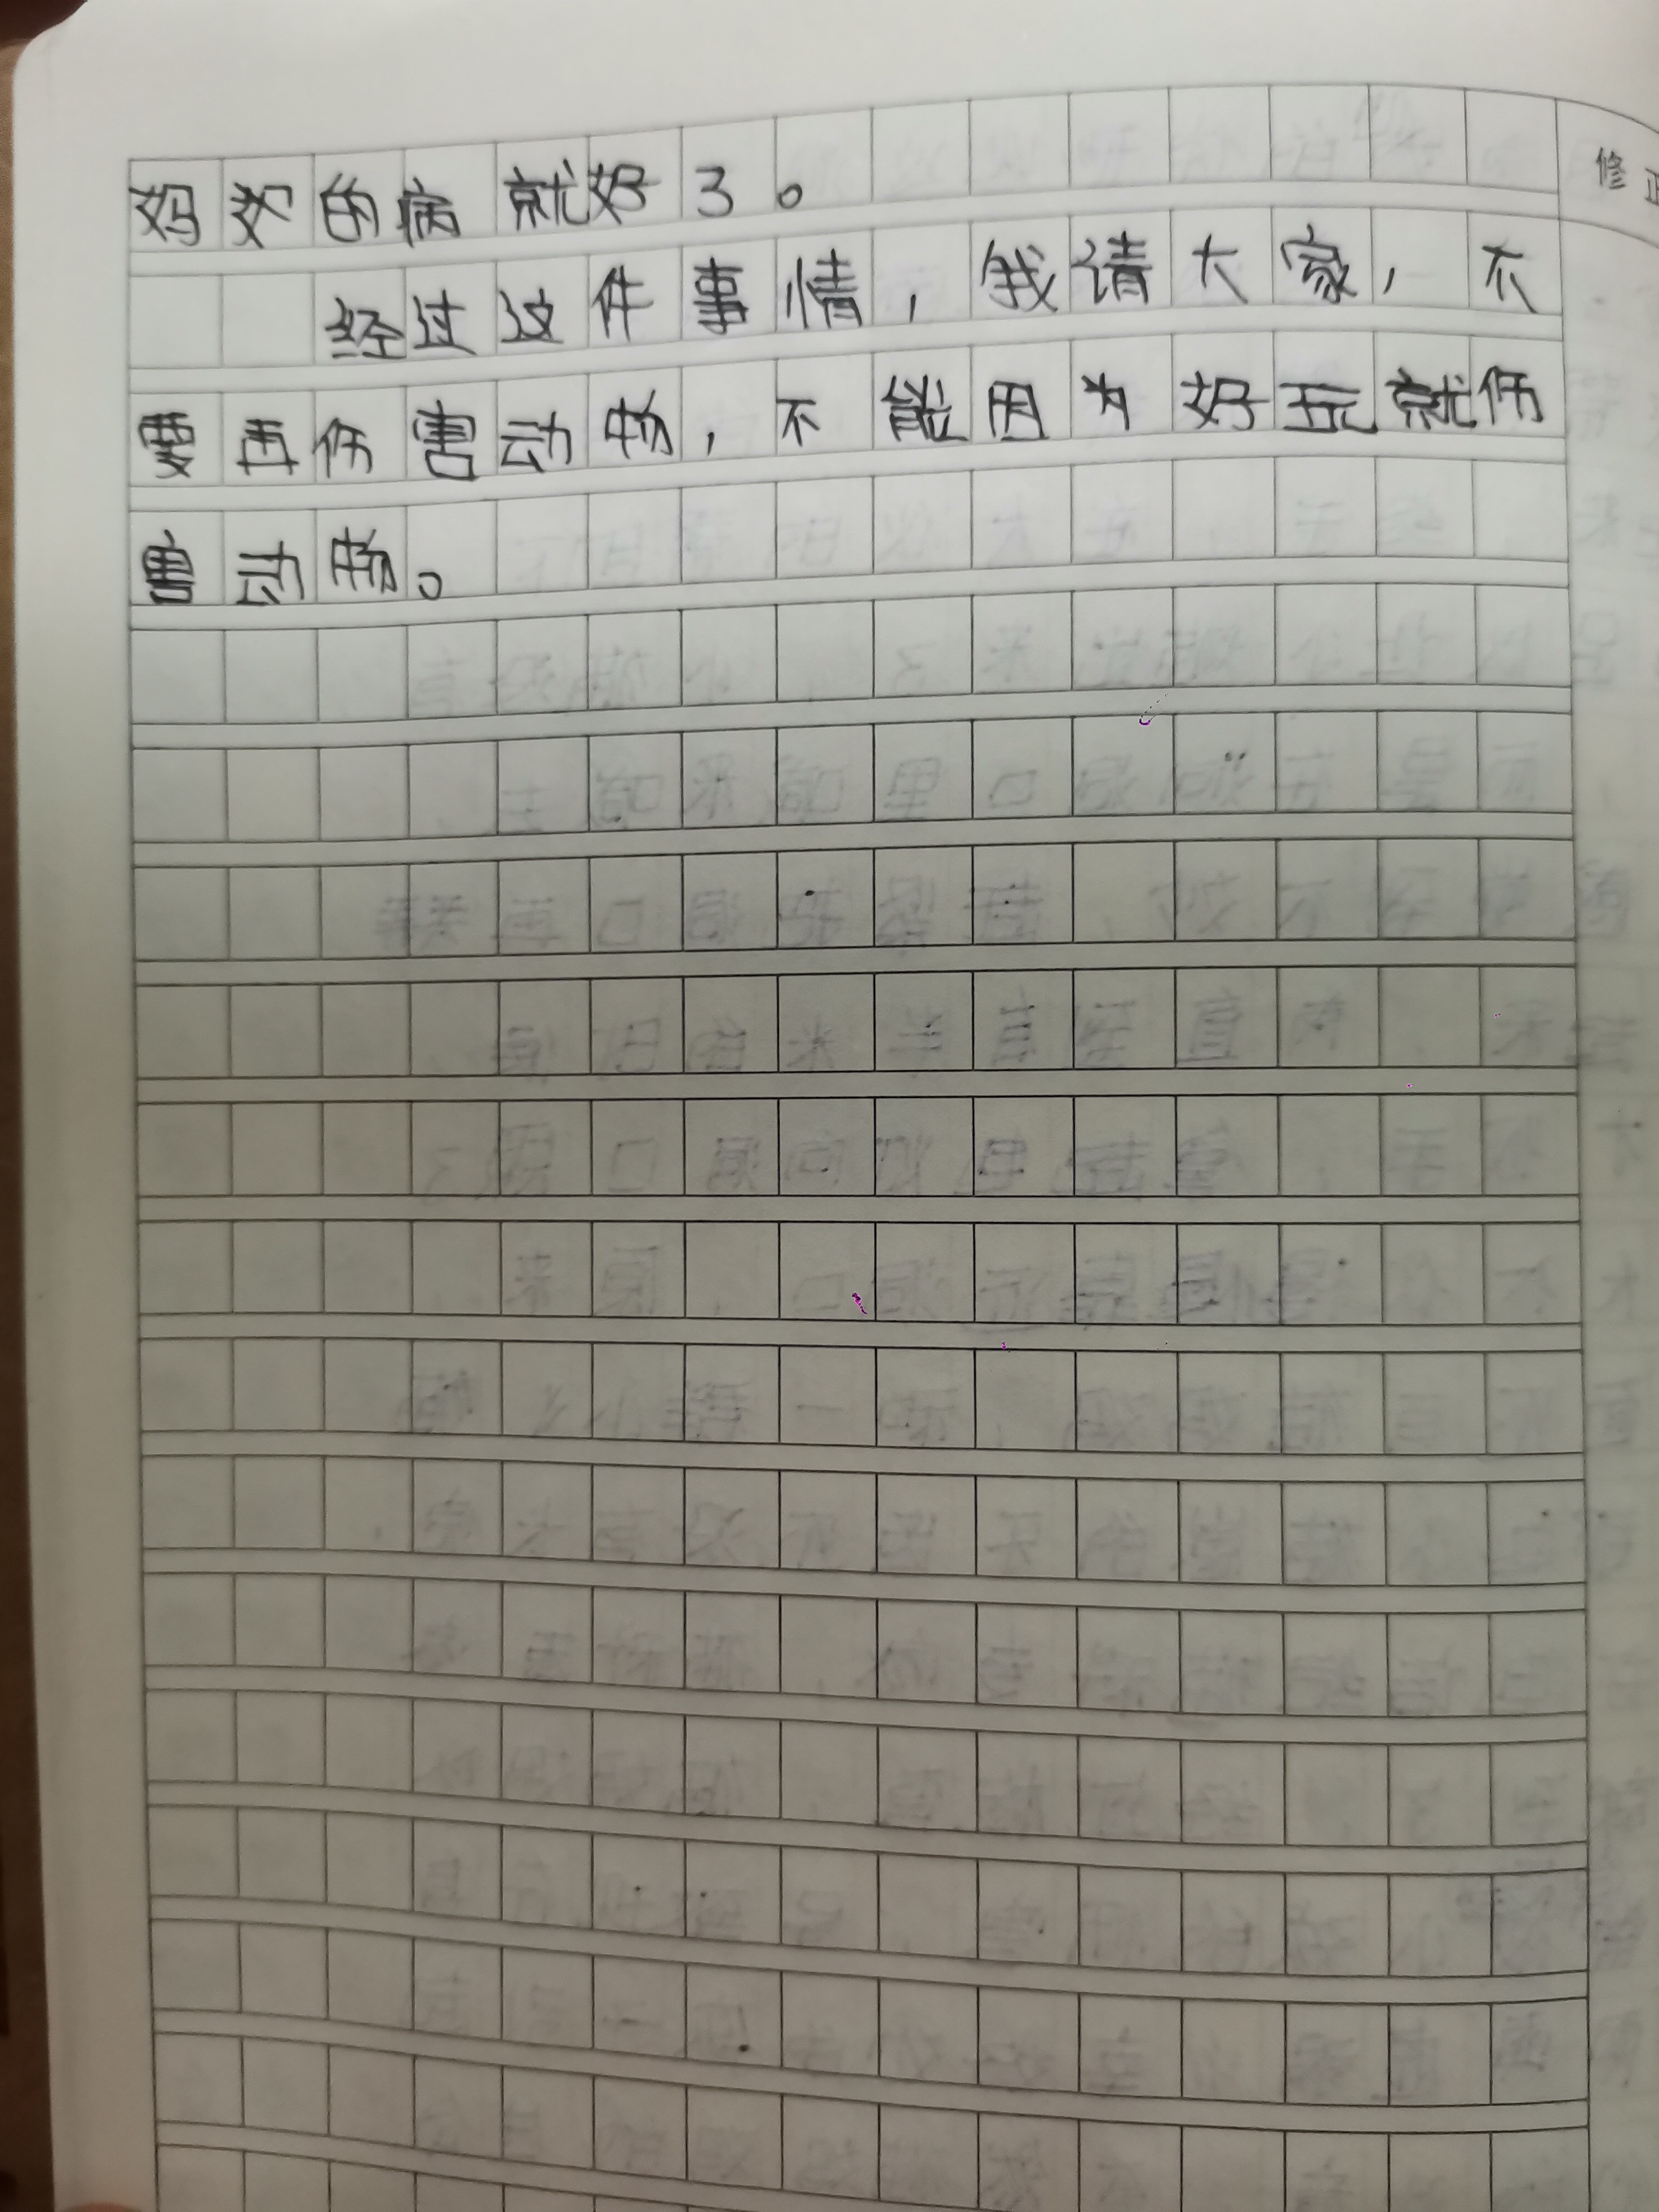 妈妈的病就好了。 修正
经过这件事情，我请大家，不
要再伤害动物，不能因为好玩就伤
害动物。